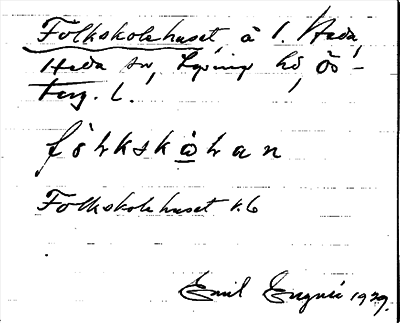 Folkskolehuset, å 1. Heda,
Heda sn, Lysings hd, Ös-
terg. l.
fólkskòlan
Folkskolehuset kb
Emil Engnér 1929.